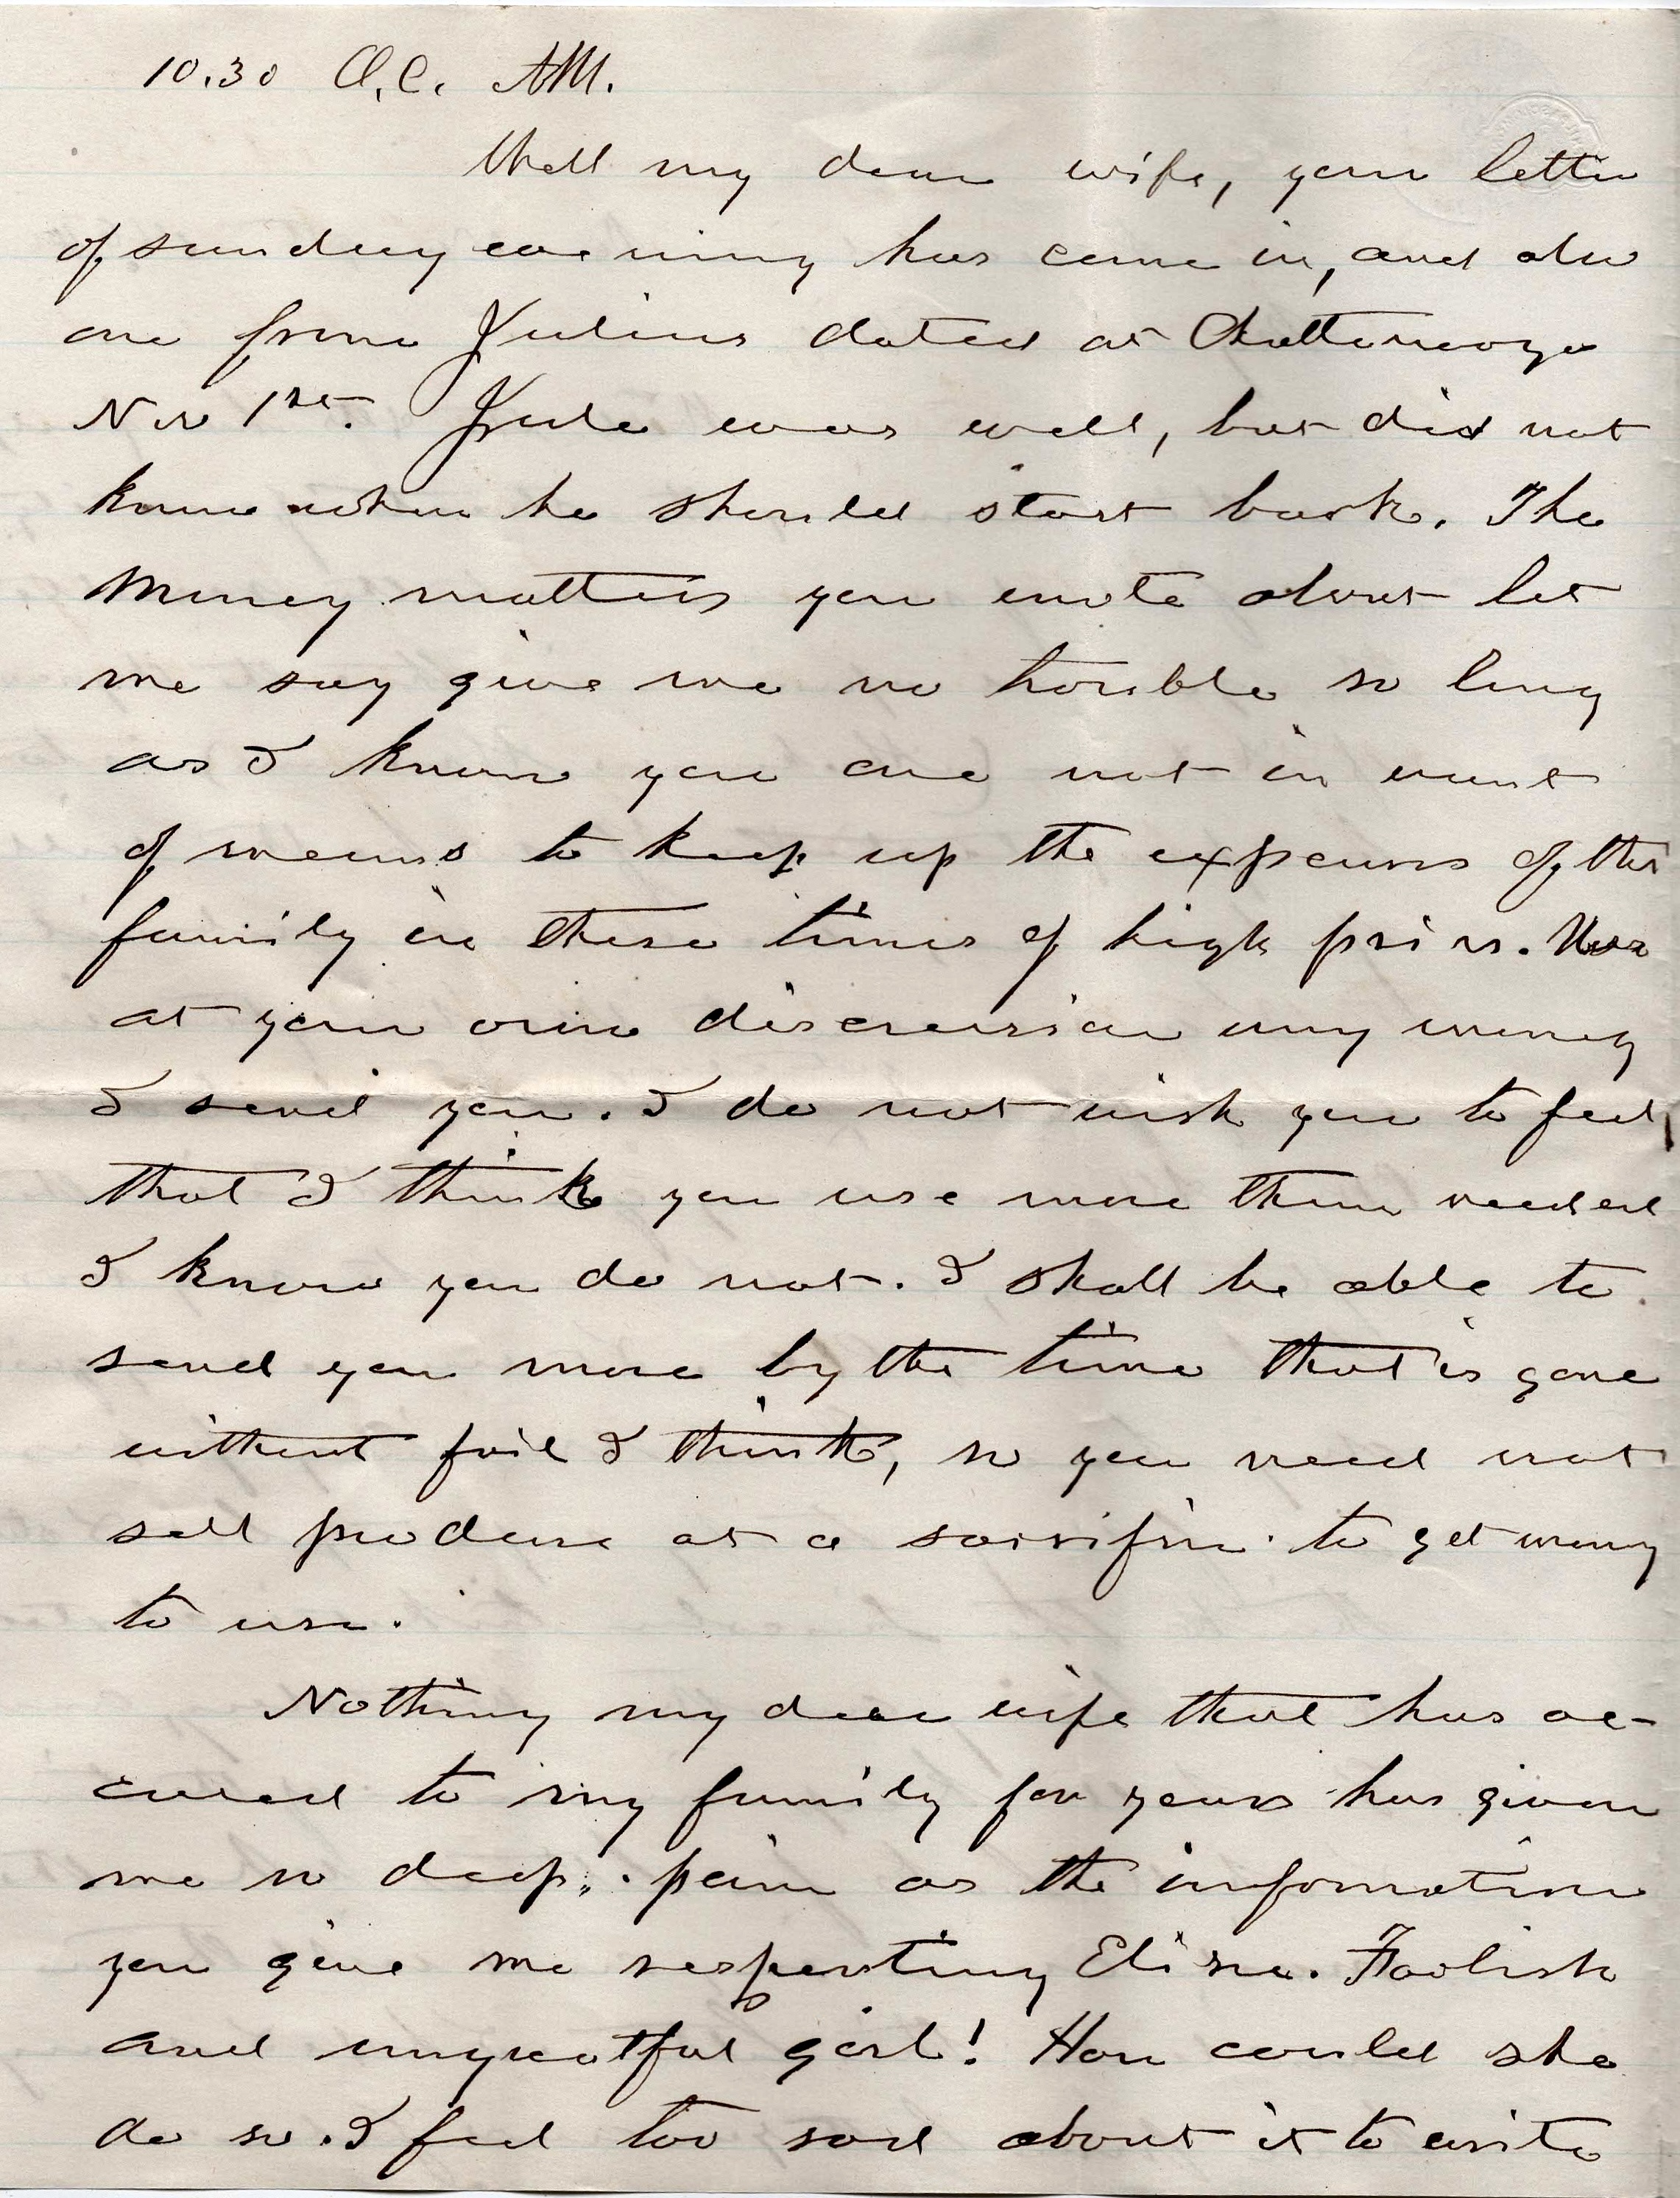 10.30 O.C. AM.
Well my dear wife, your letter
of sunday evening has come in, and also
one from Julius dated at Chattanooga
Nov 1st. Jule was well, but did not
know when he should start back. The
Money matters you wrote about let
me say give me no trouble so long
as I know you are not in want
of means to keep up the expenses of the
family in these times of high prices. Use
at your own discression any money
I send you. I do not wish you to feel
that I think you use more than needed
I know you do not. I shall be able to
send you more by the time that is gone
without fail I think, so you need not
sell produce at a sacrifice to get money
to use.
Nothing my dear wife that has oc-
cured to my family for years has given
me so deep pain as the information
you give me respecting Eliza. Foolish
and ungreatful girl! How could she
do so. I feel too sad about it to write